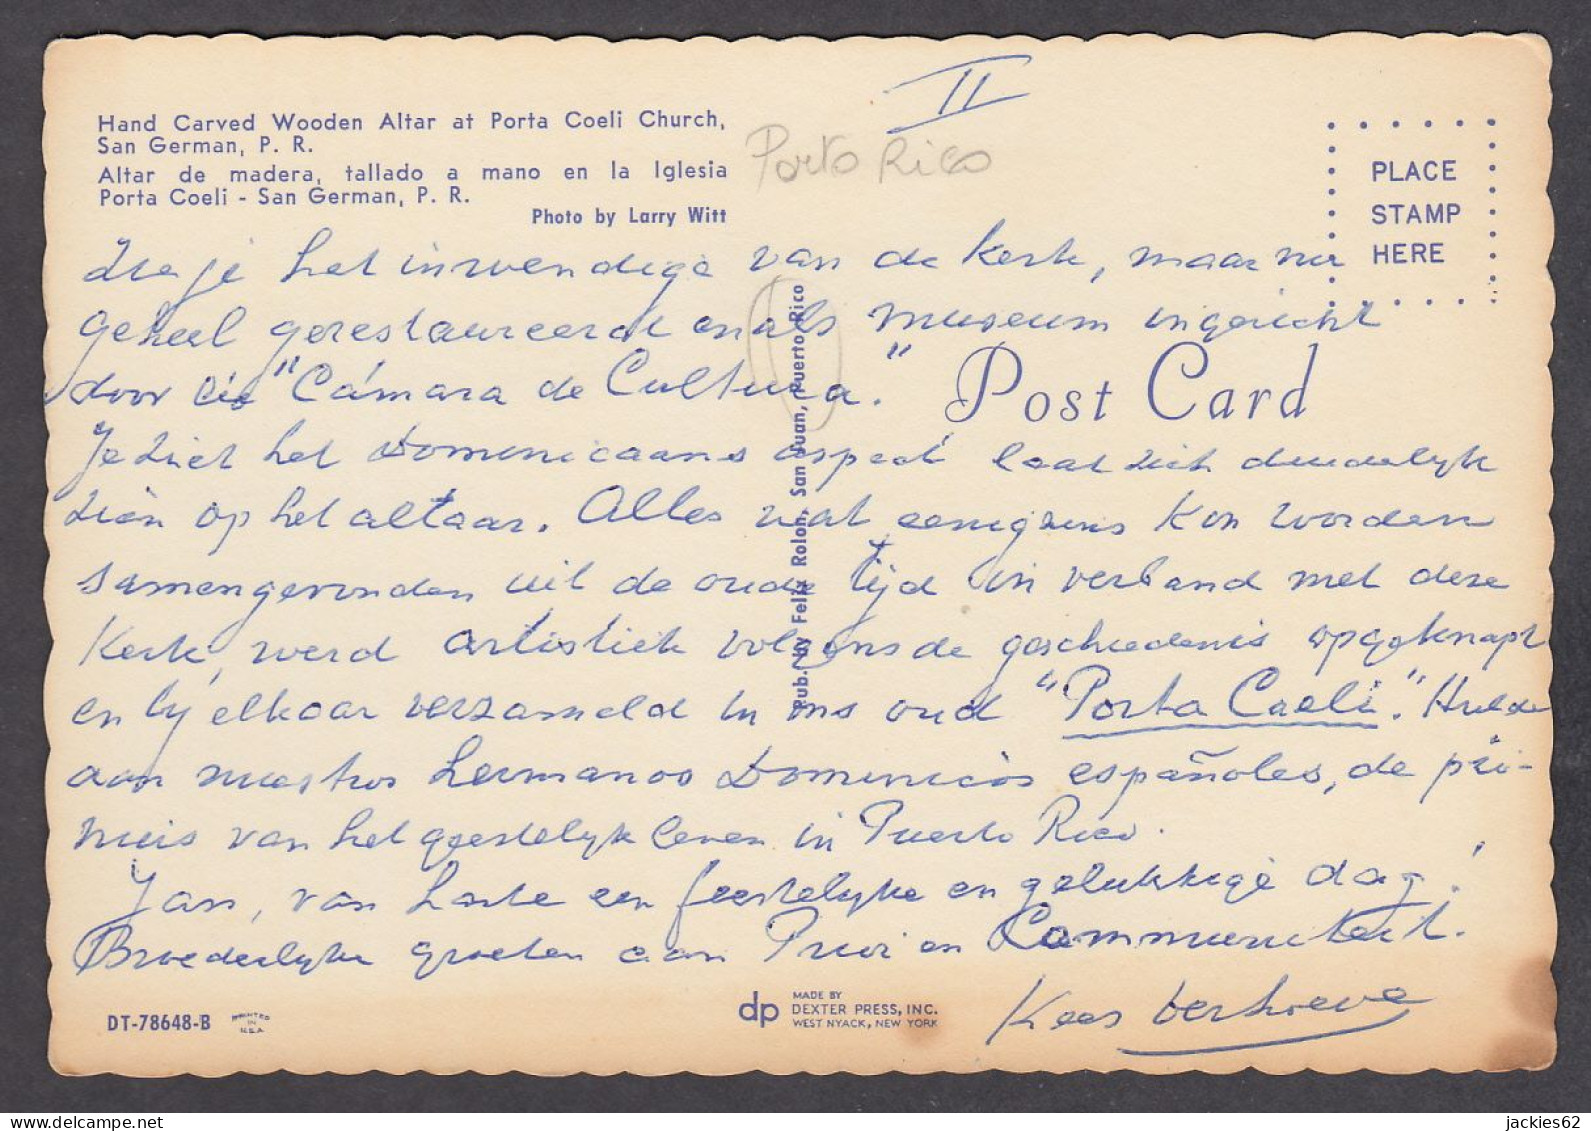 II
Hand Carved Wooden Altar at Porta Coeli Church,
San German, P. R.
Altar de madera, tallado a mano en la Iglesia
Porta Coeli - San German, P. R.
Photo by Larry Witt
Porto Rico
PLACE
STAMP
HERE
Zie je het inwendige van de kerk, maar nu
geheel gerestaureerd en als museum ingericht
door de "Cámara de Cultura."
Post Card
Je ziet het Dominicaans aspect laat zich duidelijk
zien op het altaar. Alles wat eenigzins kon worden
samengevonden uit de oude tijd in verband met deze
kerk, werd artistiek volgens de geschiedenis opgeknapt
en bij elkaar verzameld in ons oud "Porta Caeli". Hulde
aan nuestros hermanos Dominicos españoles, de pri-
mus van het geestelijk leven in Puerto Rico.
Jan, van harte een feestelijke en gelukkige dag!
Broederlijke groeten aan Prior en Communiteit.
Kees Verhoeve
Pub. by Felix Rolon, San Juan, Puerto Rico
DT-78648-B
PRINTED
IN
U.S.A.
dp
MADE BY
DEXTER PRESS, INC.
WEST NYACK, NEW YORK
jackies62